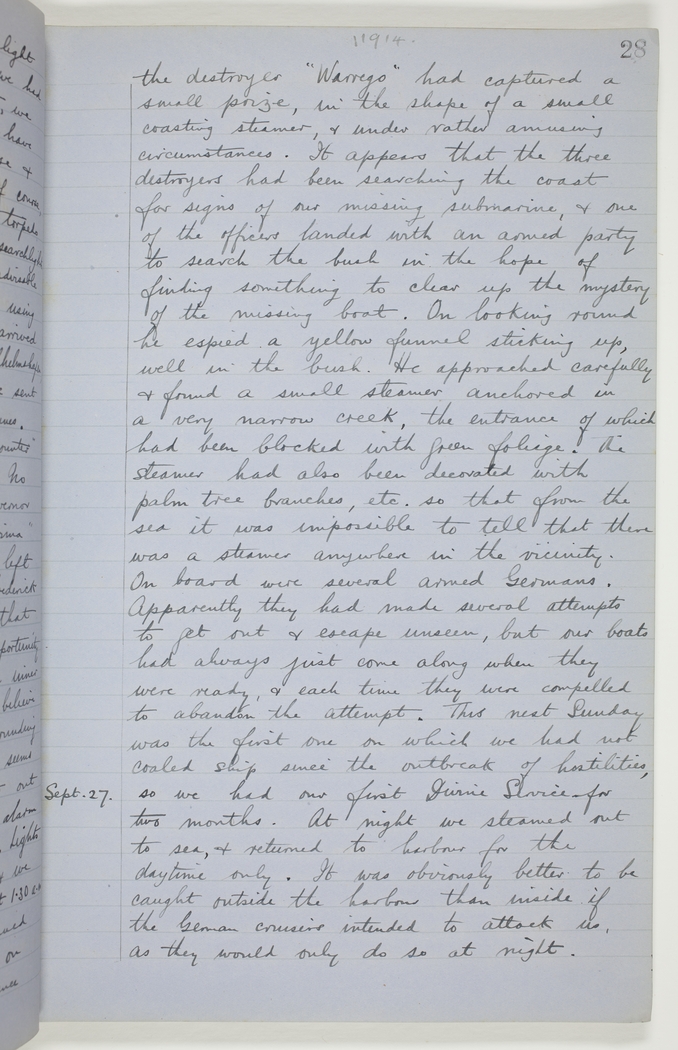 1914.
28
the destroyer "Warrego" had captured a
small prize, in the shape of a small
coasting steamer, & under rather amusing
circumstances. It appears that the three
destroyers had been searching the coast
for signs of our missing submarine, & one
of the officers landed with an armed party
to search the bush in the hope of
finding something to clear up the mystery
of the missing boat. On looking round
he espied a yellow funnel sticking up,
well in the bush. He approached carefully
& found a small steamer anchored in
a very narrow creek, the entrance of which
had been blocked with green foliage. The
steamer had also been decorated with
palm tree branches, etc. so that from the
sea it was impossible to tell that there
was a steamer anywhere in the vicinity.
On board were several armed Germans.
Apparently they had made several attempts
to get out & escape unseen, but our boats
had always just come along when they
were ready, & each time they were compelled
to abandon the attempt. This next Sunday
was the first one on which we had not
coaled ship since the outbreak of hostilities,
Sept. 27. so we had our first Divine Service for
two months. At night we steamed out
to sea, & returned to harbour for the
daytime only. It was obviously better to be
caught outside the harbour than inside if
the German cruisers intended to attack us,
as they would only do so at night.
light
we had
we
have
&
of course,
torpedo
searchlight
using
arrived
sent
No
left
that
inner
believe
seems
out
alarm
Lights
& we
1-30 a.m
on